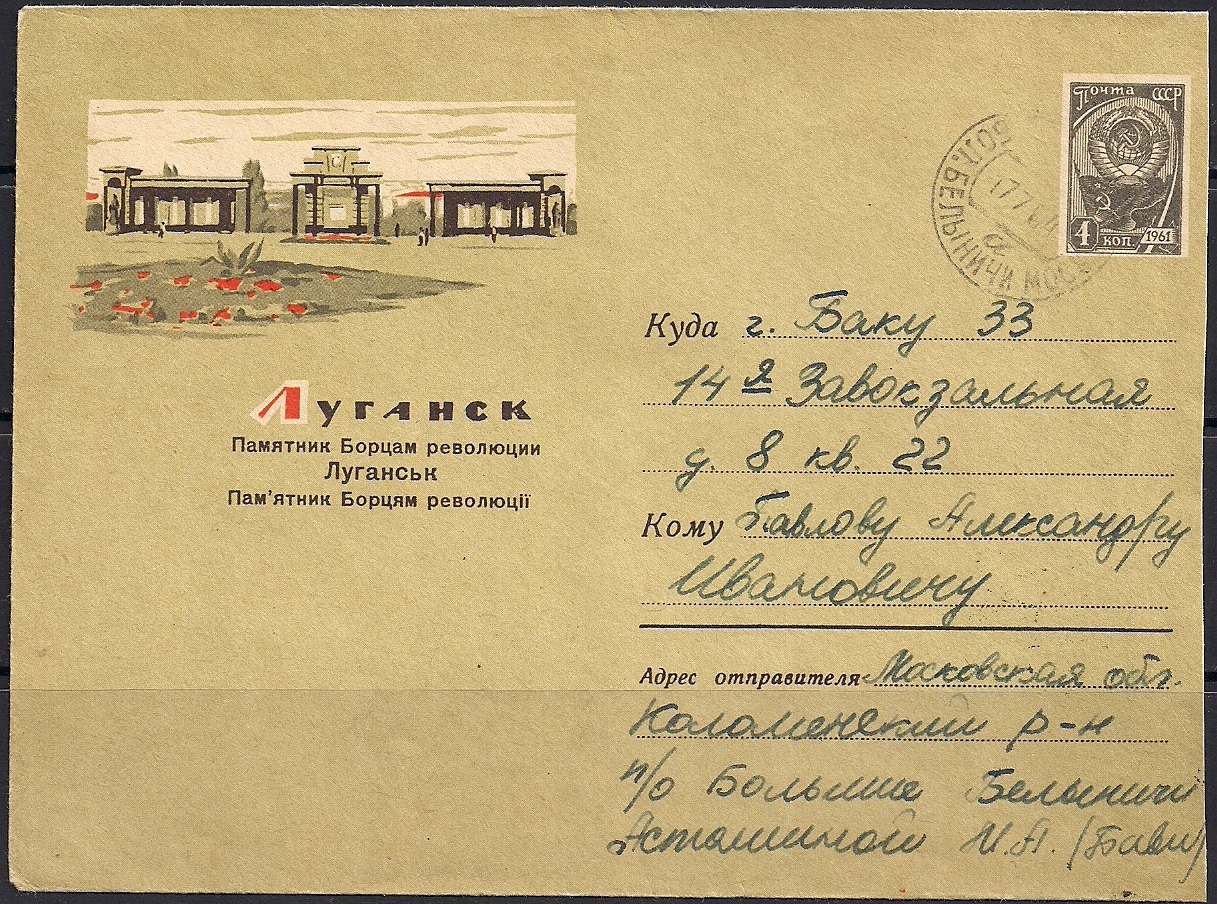 Почта СССР
4 коп. 1961
БЕЛЫНИЧИ МОСК
Куда г. Баку 33
14я Завокзальная
д. 8 кв. 22
Кому Павлову Александру
Ивановичу
Луганск
Памятник Борцам революции
Луганськ
Пам'ятник Борцям революції
Адрес отправителя Московская обл.
Коломенский р-н
п/о Большие Белыничи
Асташиной И.А.